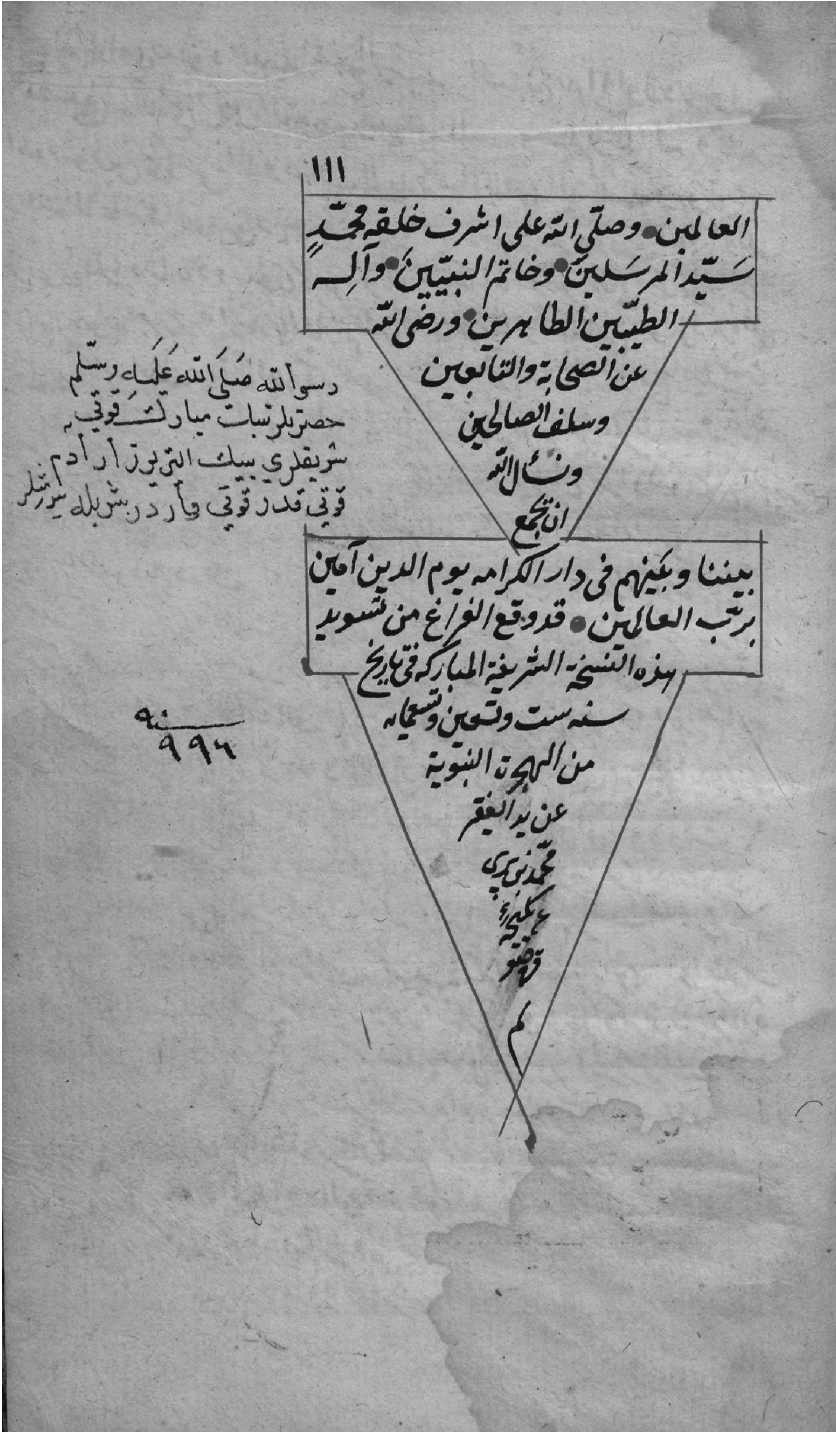 ١١١
العالمين وصلّى الله على اشرف خلقه محمّدٍ
سَيّد المرسَلينَ وخاتم النبيّينَ وآلِه
الطيّبين الطاهرين ورضى الله
عن الصحابة والتابعين
وسلف الصالحين
ونسأل الله
ان يجمع
بيننا وبَينهم فى دار الكرامه يوم الدين آمين
بربّ العالمين قد وقع الفراغ من تسويد
هذه النسخة الشريفة المباركه فى تاريخ
سنه ست وتسعين وتسعمايه
من الهجرة النبوية
عن يد الفقير
محمّد بن پيرى
تم
رسو الله صَلَى الله عَلَيه وسلّم
حضرتلر نبات مبارك قوتى
شريفلرى بيك التى يوز ار ادم
قوتى قدر قوتى وار در
سنه
٩٩٦